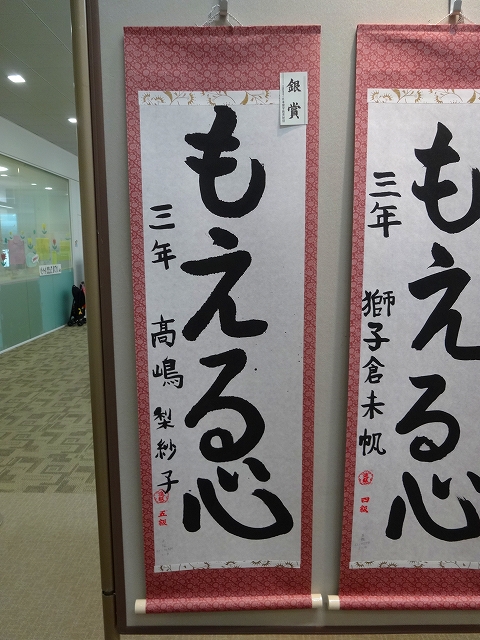 銀賞
もえる心
三年 高嶋 梨紗子
五級
もえる心
三年 獅子倉未帆
四級